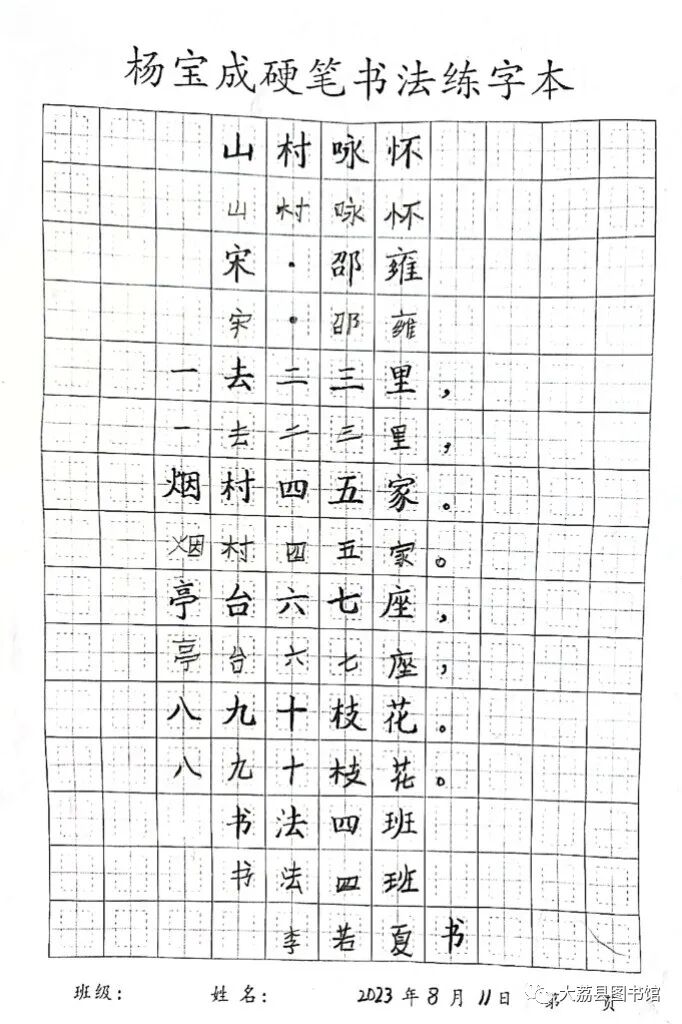 杨宝成硬笔书法练字本
山村咏怀
山村咏怀
宋·邵雍
宋·邵雍
一去二三里，
一去二三里，
烟村四五家。
烟村四五家。
亭台六七座，
亭台六七座，
八九十枝花。
八九十枝花。
书法四班
书法四班
李若夏书
班级： 姓名： 2023年8月11日 第 页
大荔县图书馆